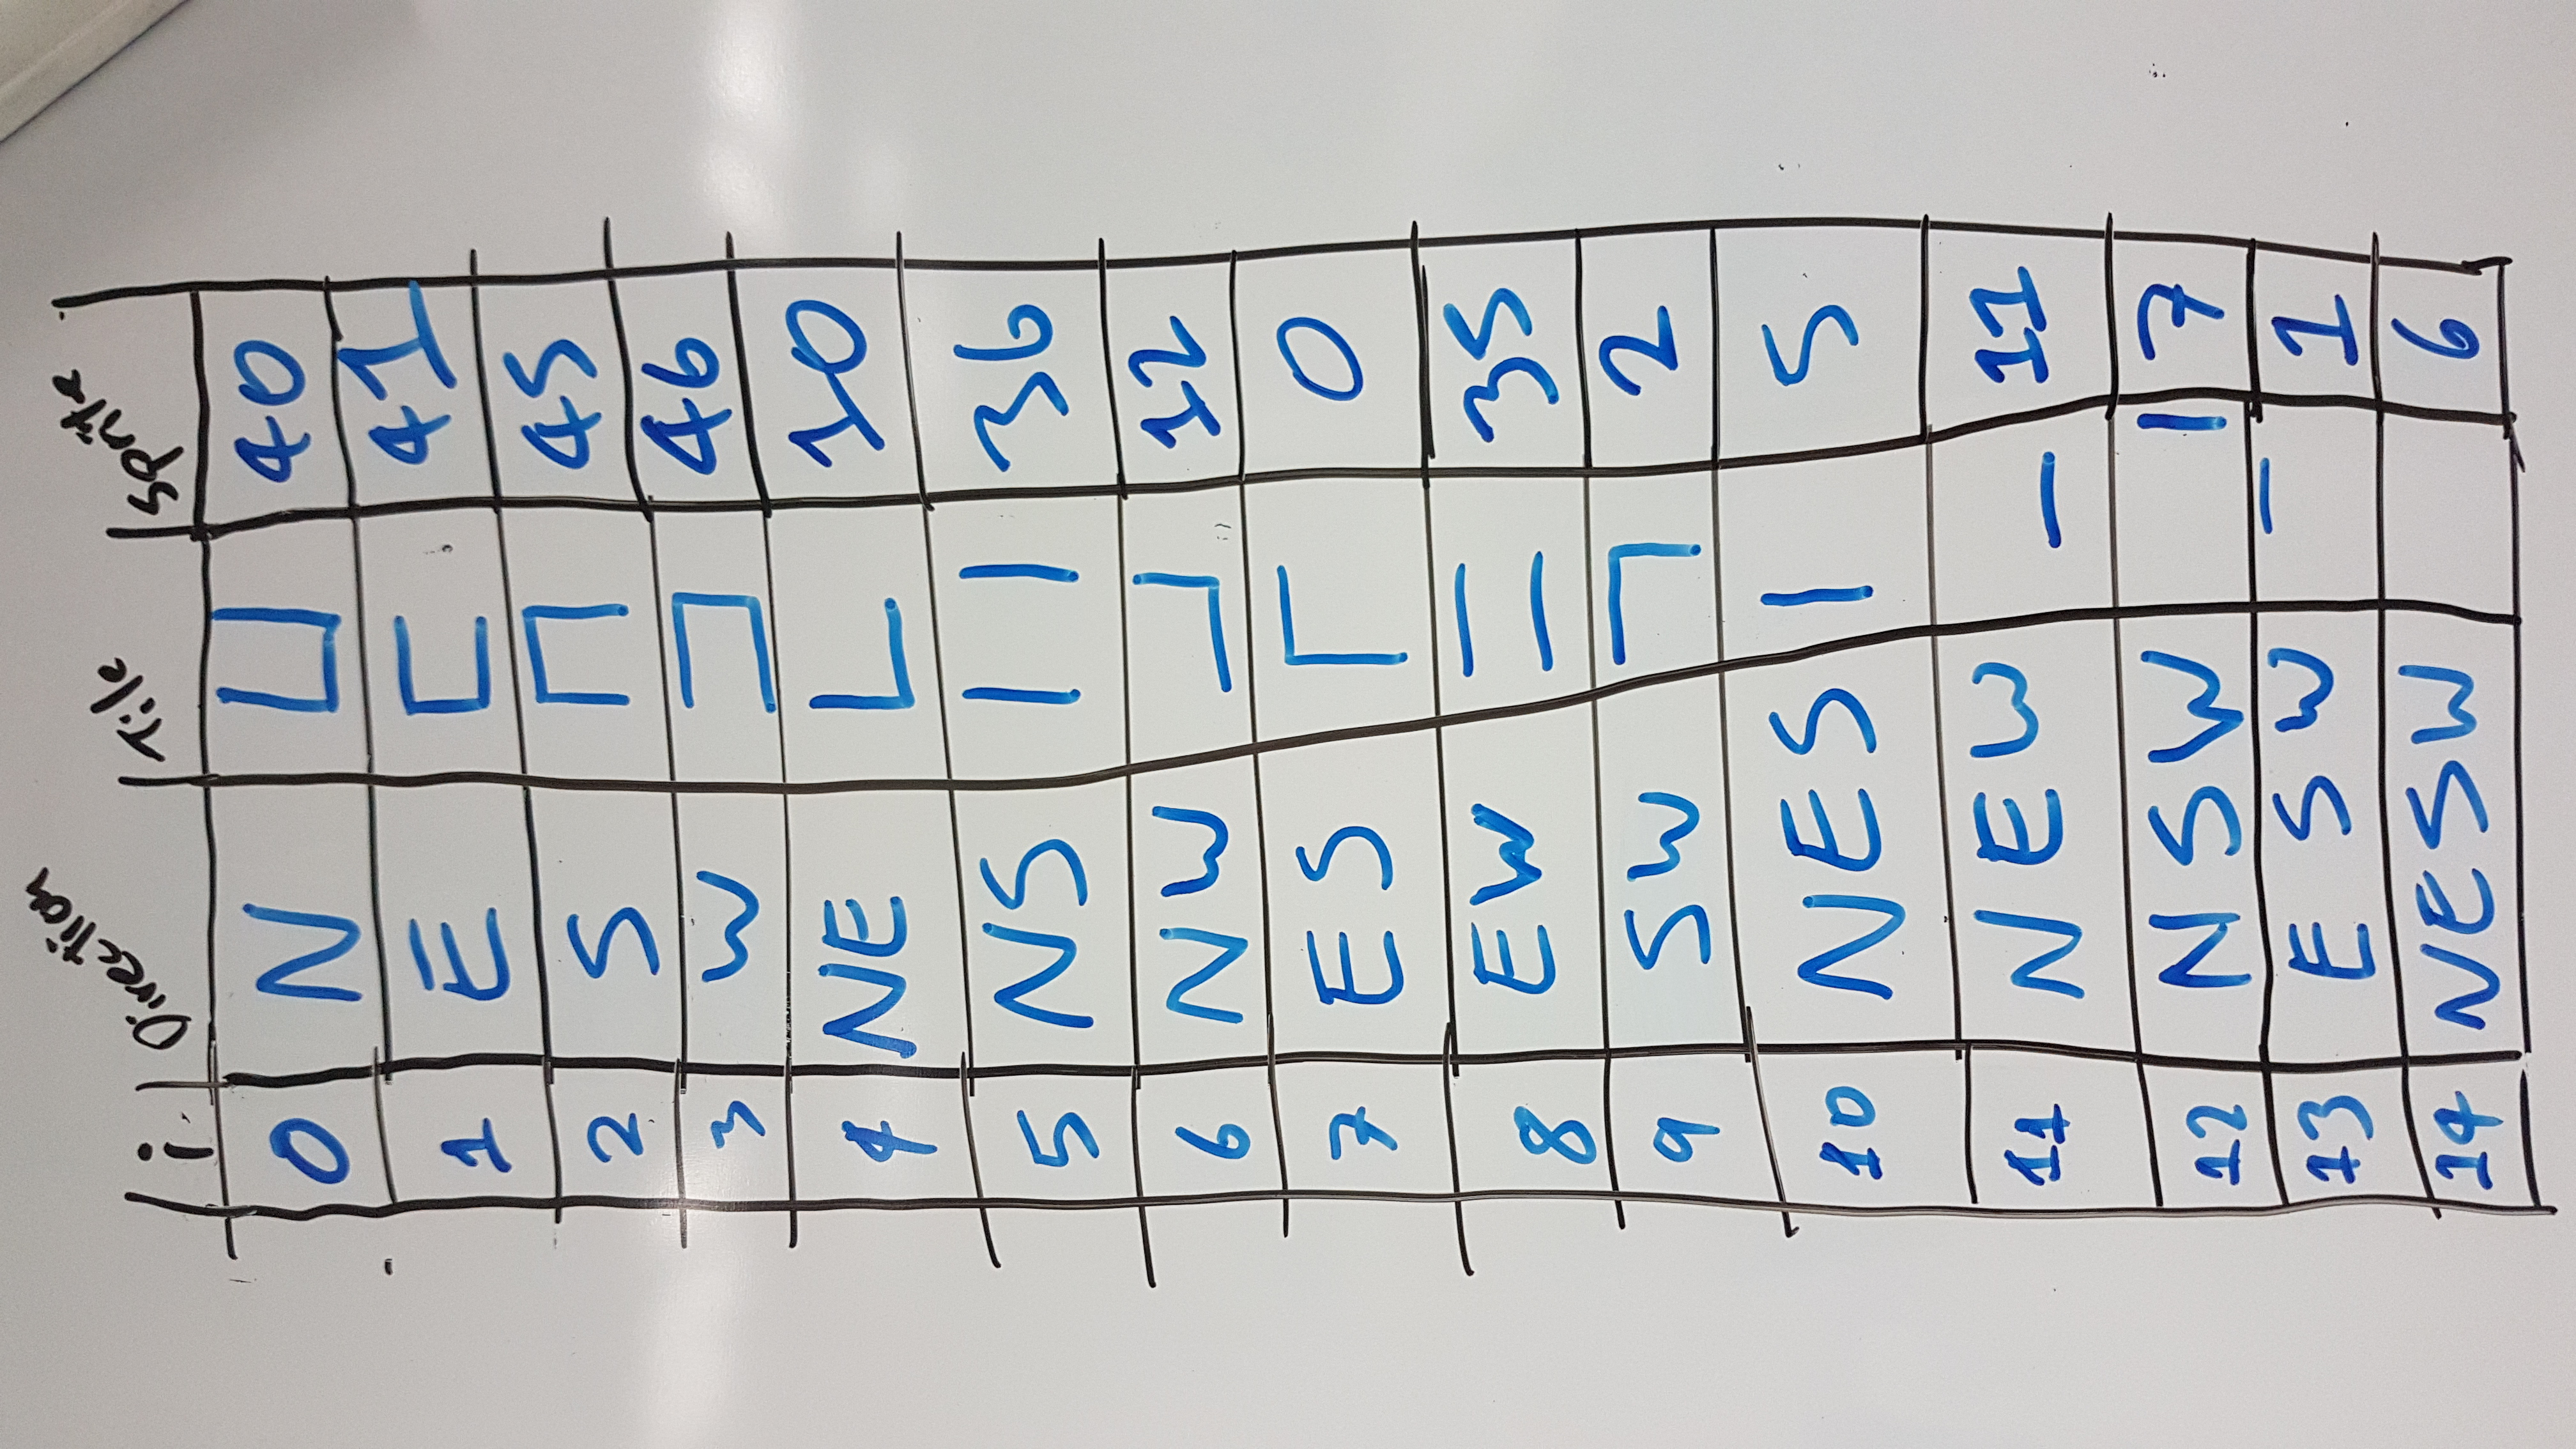 i Direction Tile Sprite
0 N 40
1 E 41
2 S 45
3 W 46
4 NE 10
5 NS 36
6 NW 12
7 ES 0
8 EW 35
9 SW 2
10 NES 5
11 NEW 11
12 NSW 7
13 ESW 1
14 NESW 6